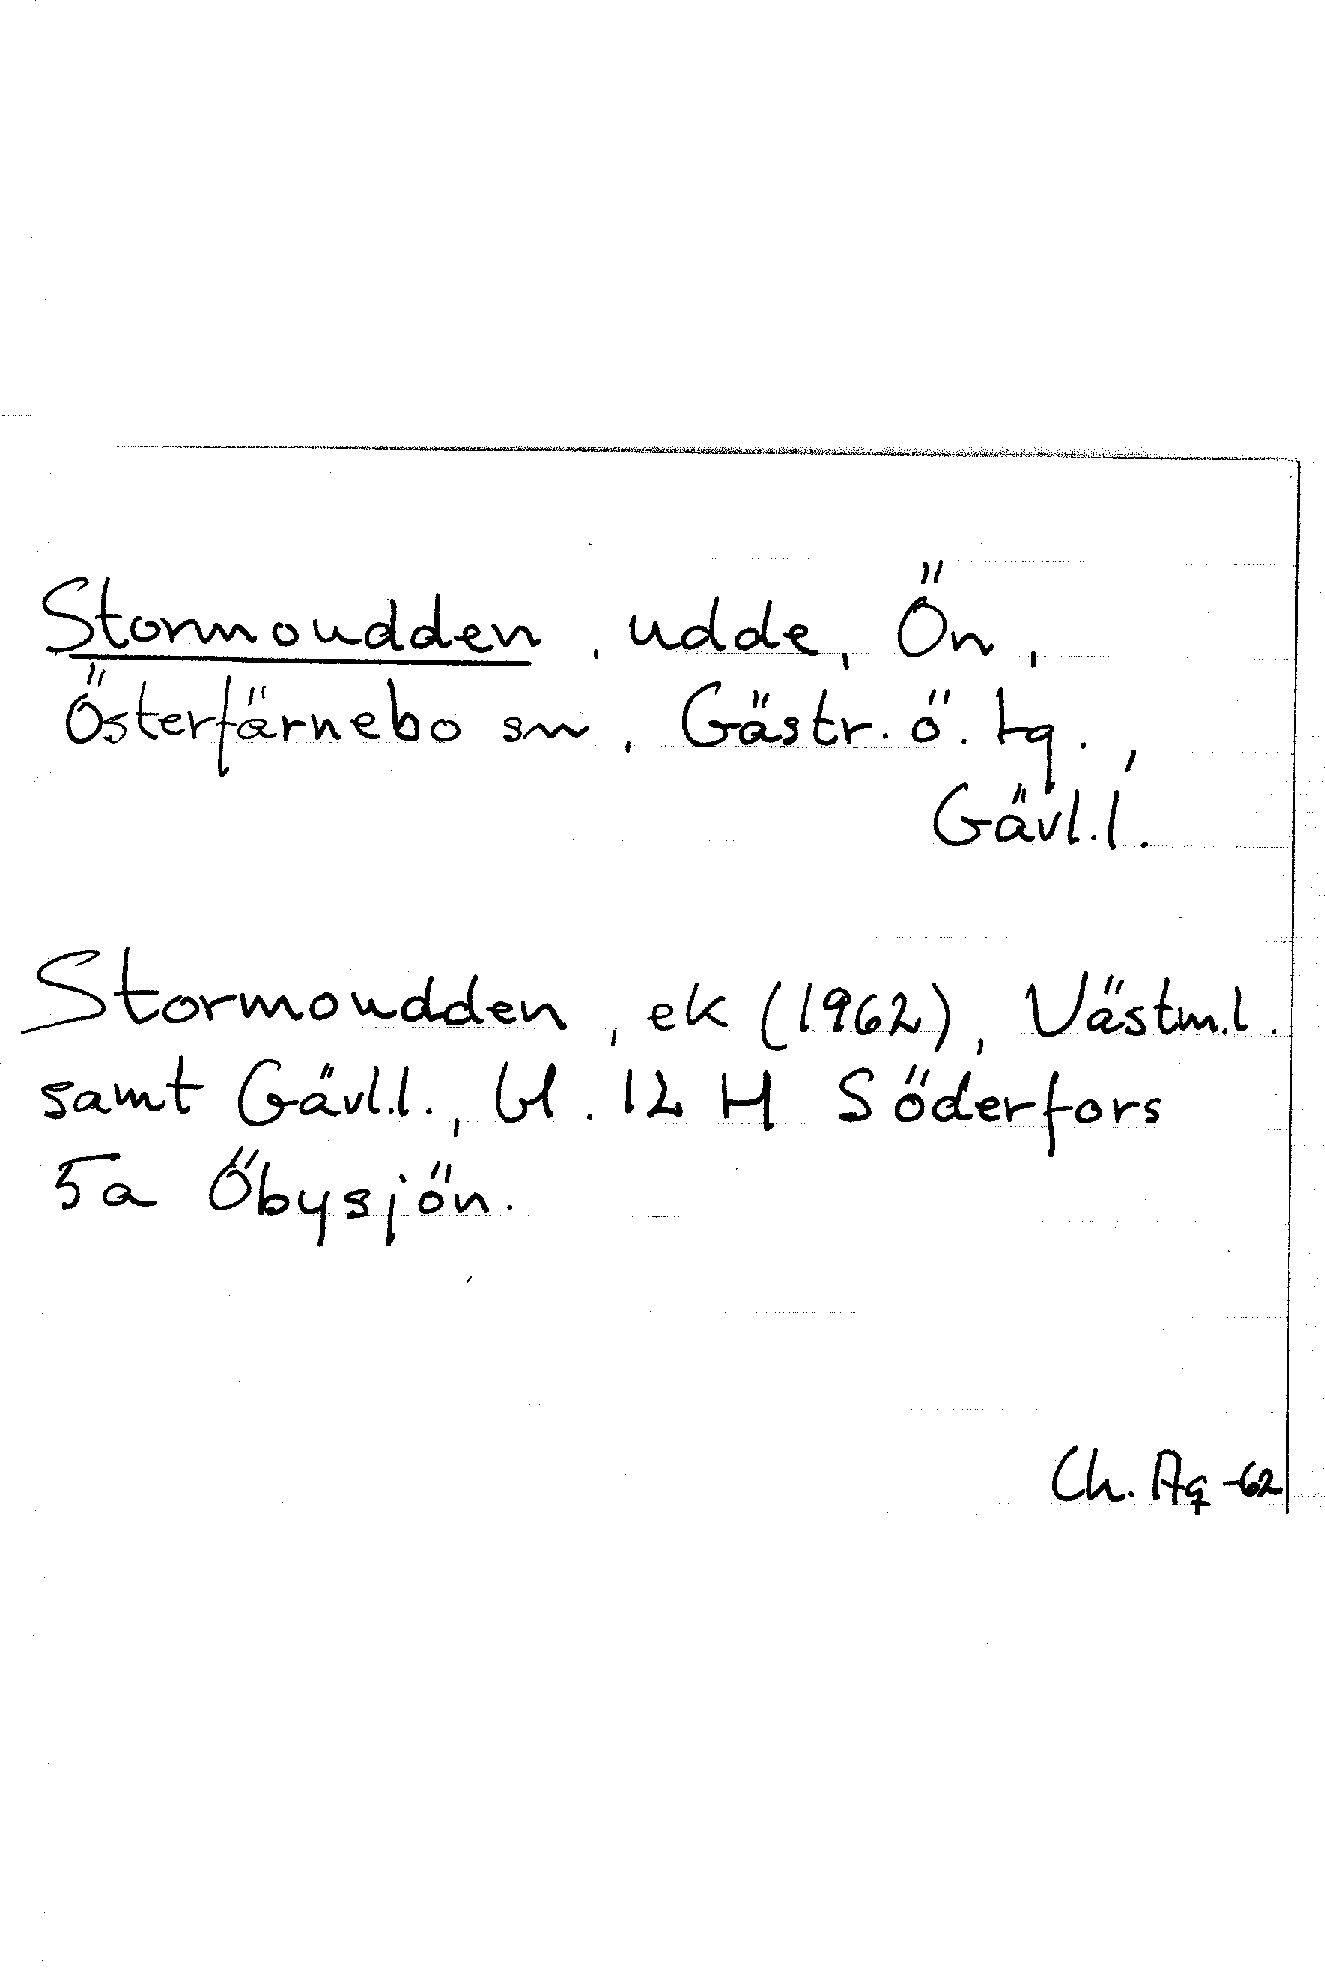 Stormoudden, udde, Ön,
Österfärnebo sn, Gästr. ö. tg.,
Gävl.l.
Stormoudden, ek (1962), Västm.l.
samt Gävl.l., bl. 12 H Söderfors
5a Öbysjön.
Ch. Ag -62